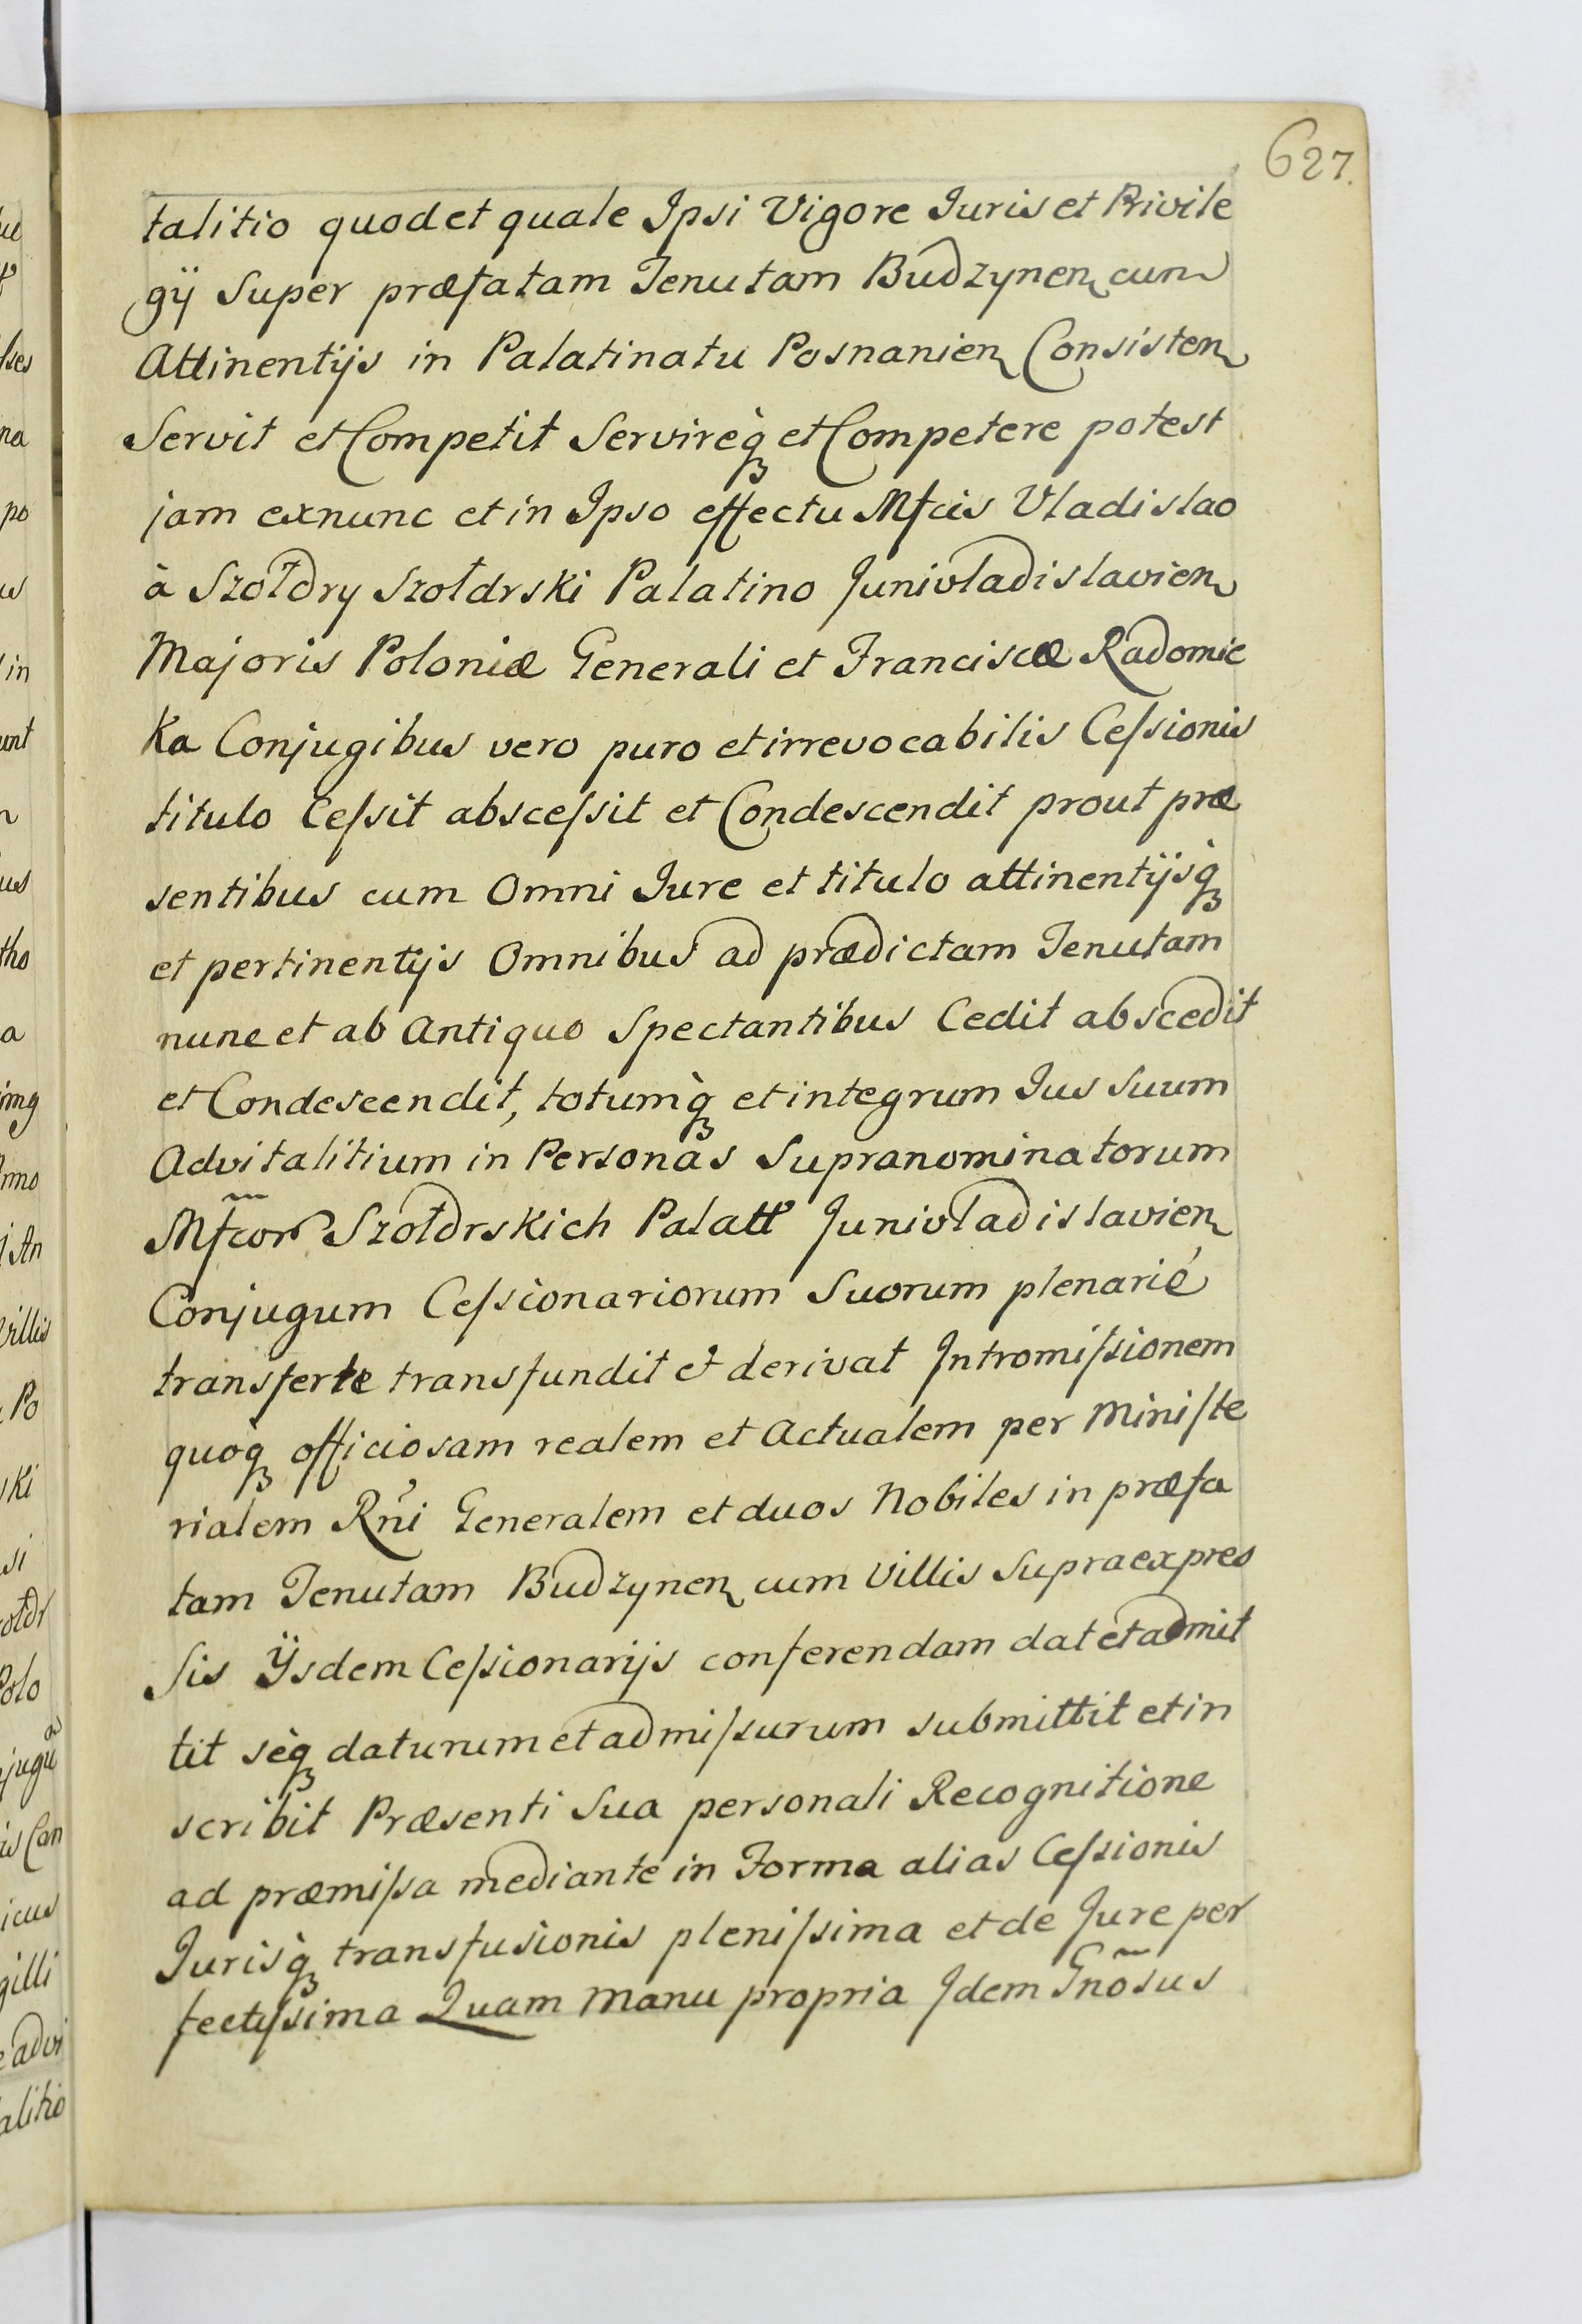 627.
talitio quod et quale Ipsi Vigore Iuris et Privile
gÿ Super præfatam Tenutam Budzynen cum
Attinentÿs in Palatinatu Posnanien Consisten
Servit et Competit Servireq̀ et Competere potest
jam exnunc et in Ipso effectu Mfcis Vladislao
à Szołdry Szołdrski Palatino Junivladislavien
Majoris Poloniæ Generali et Franciscæ Radomic
ka Conjugibus vero puro et irrevocabilis Ceſsionis
titulo Ceſsit absceſsit et Condescendit prout præ
sentibus cum Omni Jure et titulo attinentÿsq̀
et pertinentÿs Omnibus ad prædictam Tenutam
nunc et ab Antiquo Spectantibus Cedit abscedit
et Condescendit, totumq̀ et integrum Jus Suum
Advitalitium in Personas Supranominatorum
Mfcor Szołdrskich Palatt Junivladislavien
Conjugum Ceſsionariorum Suorum plenarié
transferte transfundit et derivat Intromiſsionem
quoq̀ officiosam realem et Actualem per Miniſte
rialem Rńi Generalem et duos Nobiles in præfa
tam Tenutam Budzynen cum Villis Supraexpres
Sis Ÿsdem Ceſsionarÿs conferendam dat et admit
tit seq̀ daturum et admiſsurum submittit et in
scribit Præsenti Sua personali Recognitione
ad præmiſsa mediante in Forma alias Ceſsionis
Jurisq̀ transfusionis pleniſsima et de Jure per
fectiſsima Quam Manu propria Idem Gnõsus